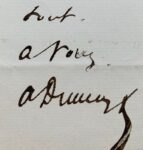 tout.
a Vous
ADumas